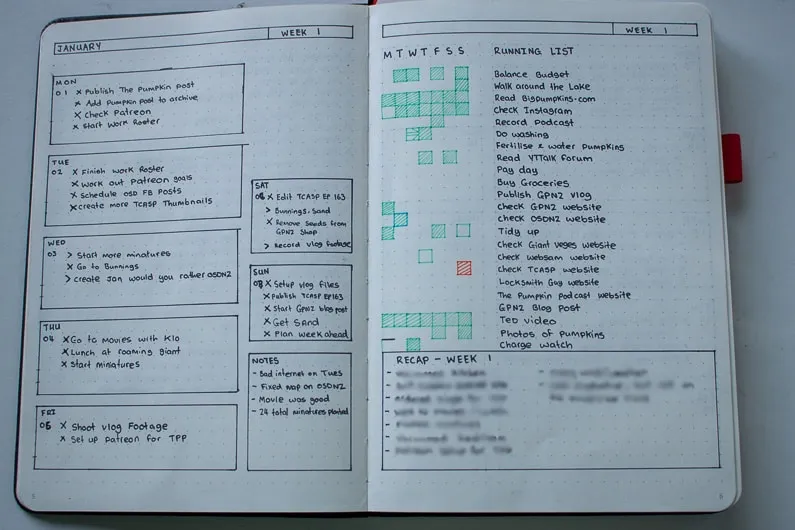 JANUARY
WEEK 1
MON
01 x Publish The Pumpkin post
x Add Pumpkin post to archive
x Check Patreon
x Start Work Roster
TUE
02 x Finish work Roster
x Work out Patreon goals
x Schedule OSD FB Posts
x Create more TCASP Thumbnails
WED
03 > Start more minatures
x Go to Bunnings
> Create Jan would you rather OSDN2
THU
04 x Go to Movies with Klo
x Lunch at roaming giant
x Start miniatures
FRI
05 x Shoot vlog Footage
x Set up Patreon for TPP
SAT
06 x Edit TCASP EP 163
> Bunnings. Sand
x Remove Seeds from
GPN2 Shop
> Record vlog footage
SUN
x Setup vlog files
x Publish TCASP EP163
x Start GPN2 blog post
x Get Sand
x Plan week ahead
NOTES
- Bad internet on Tues
- Fixed map on OSDN2
- Movie was good
- 24 total minatures planted
5
WEEK 1
M T W T F S S RUNNING LIST
Balance Budget
Walk around the Lake
Read Bigpumpkins.com
Check Instagram
Record Podcast
Do washing
Fertilise & water Pumpkins
Read YTTalk Forum
Pay day
Buy Groceries
Publish GPN2 Vlog
Check GPN2 website
Check OSDN2 website
Tidy up
Check Giant Veges website
Check websam website
Check TCASP website
Locksmith Guy website
The Pumpkin Podcast website
GPN2 Blog Post
Ted video
Photos of Pumpkins
Charge watch
RECAP - WEEK 1
6